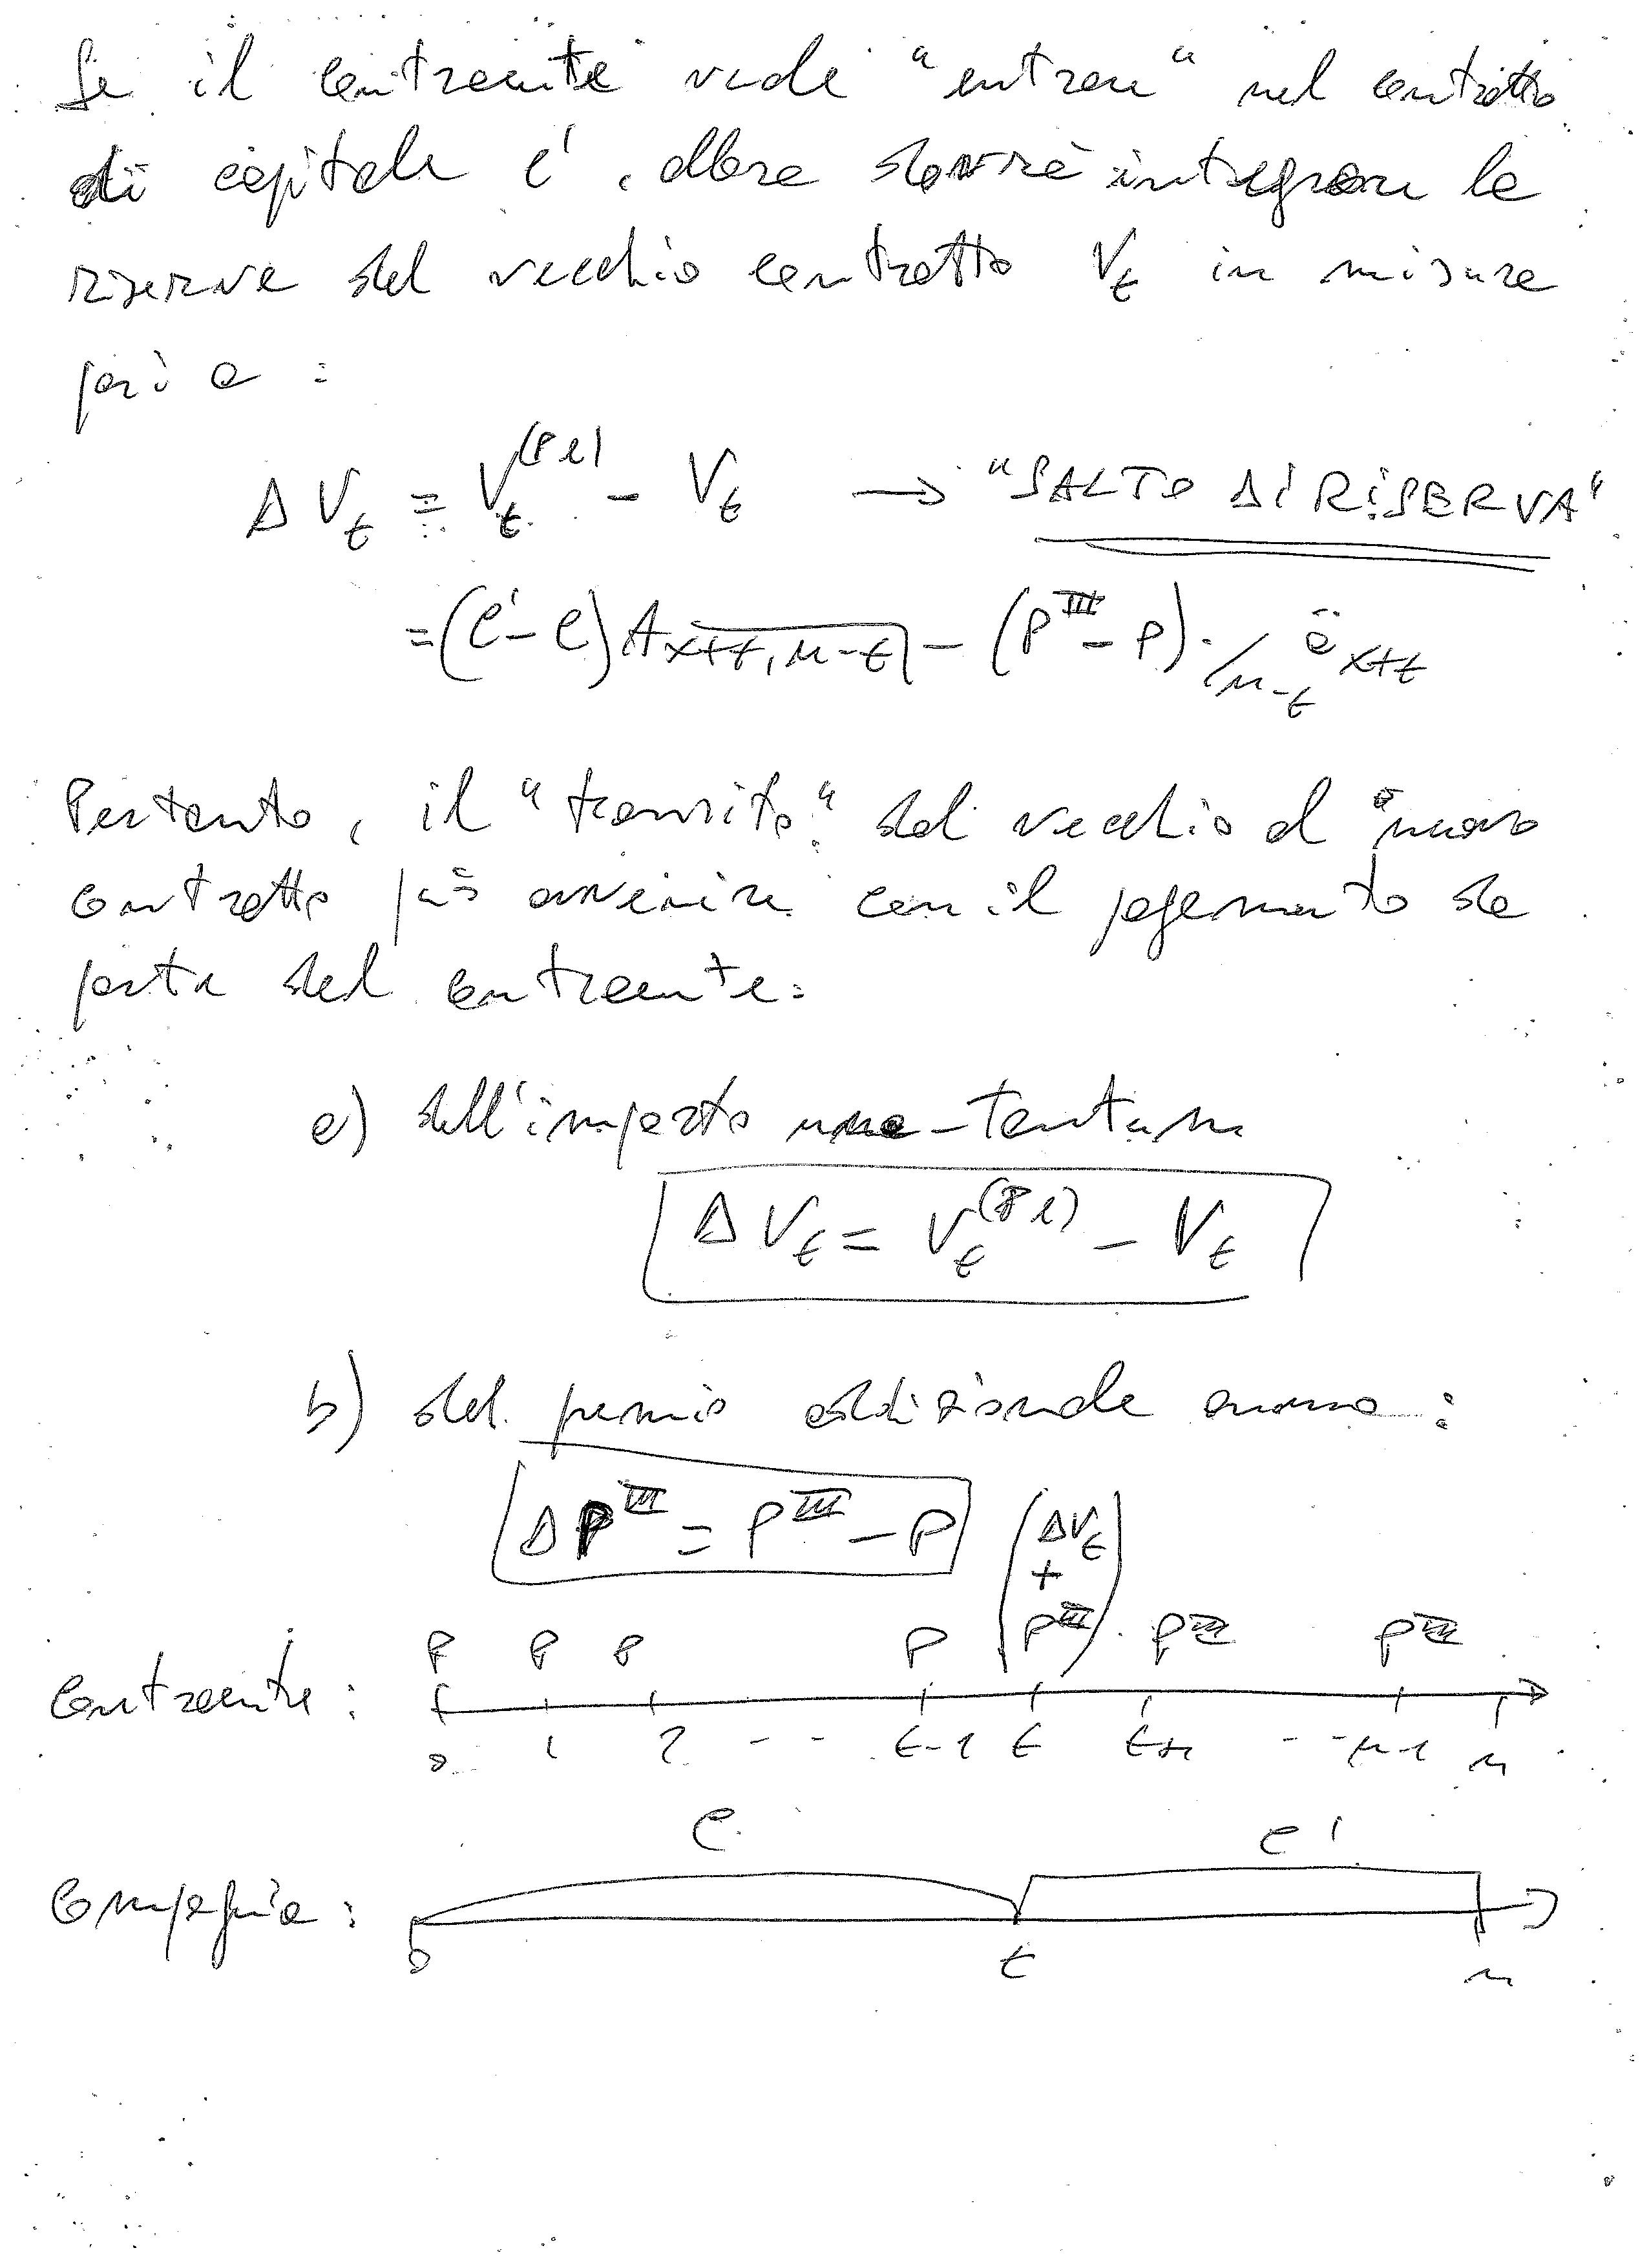 Se il contraente vuole "entrare" nel contratto
di capitale C', allora dovrà integrare la
riserva del vecchio contratto V_t in misura
pari a :
ΔV_t = V_t^(Pl) - V_t → "SALTO DI RISERVA"
= (C' - C) A_{x+t, n-t⌉} - (P^III - P) · /_{n-t} ä_{x+t}
Pertanto, il "transito" dal vecchio al nuovo
contratto può avvenire con il pagamento da
parte del contraente:
a) dell'importo una-tantum
ΔV_t = V_t^(Pl) - V_t
b) del premio addizionale annuo :
ΔP^III = P^III - P
(ΔV_t + P^III)
P P P P P^III P^III
Contraente :
0 1 2 -- t-1 t t+1 -- n-1 n
C C'
Compagnia :
0 t n